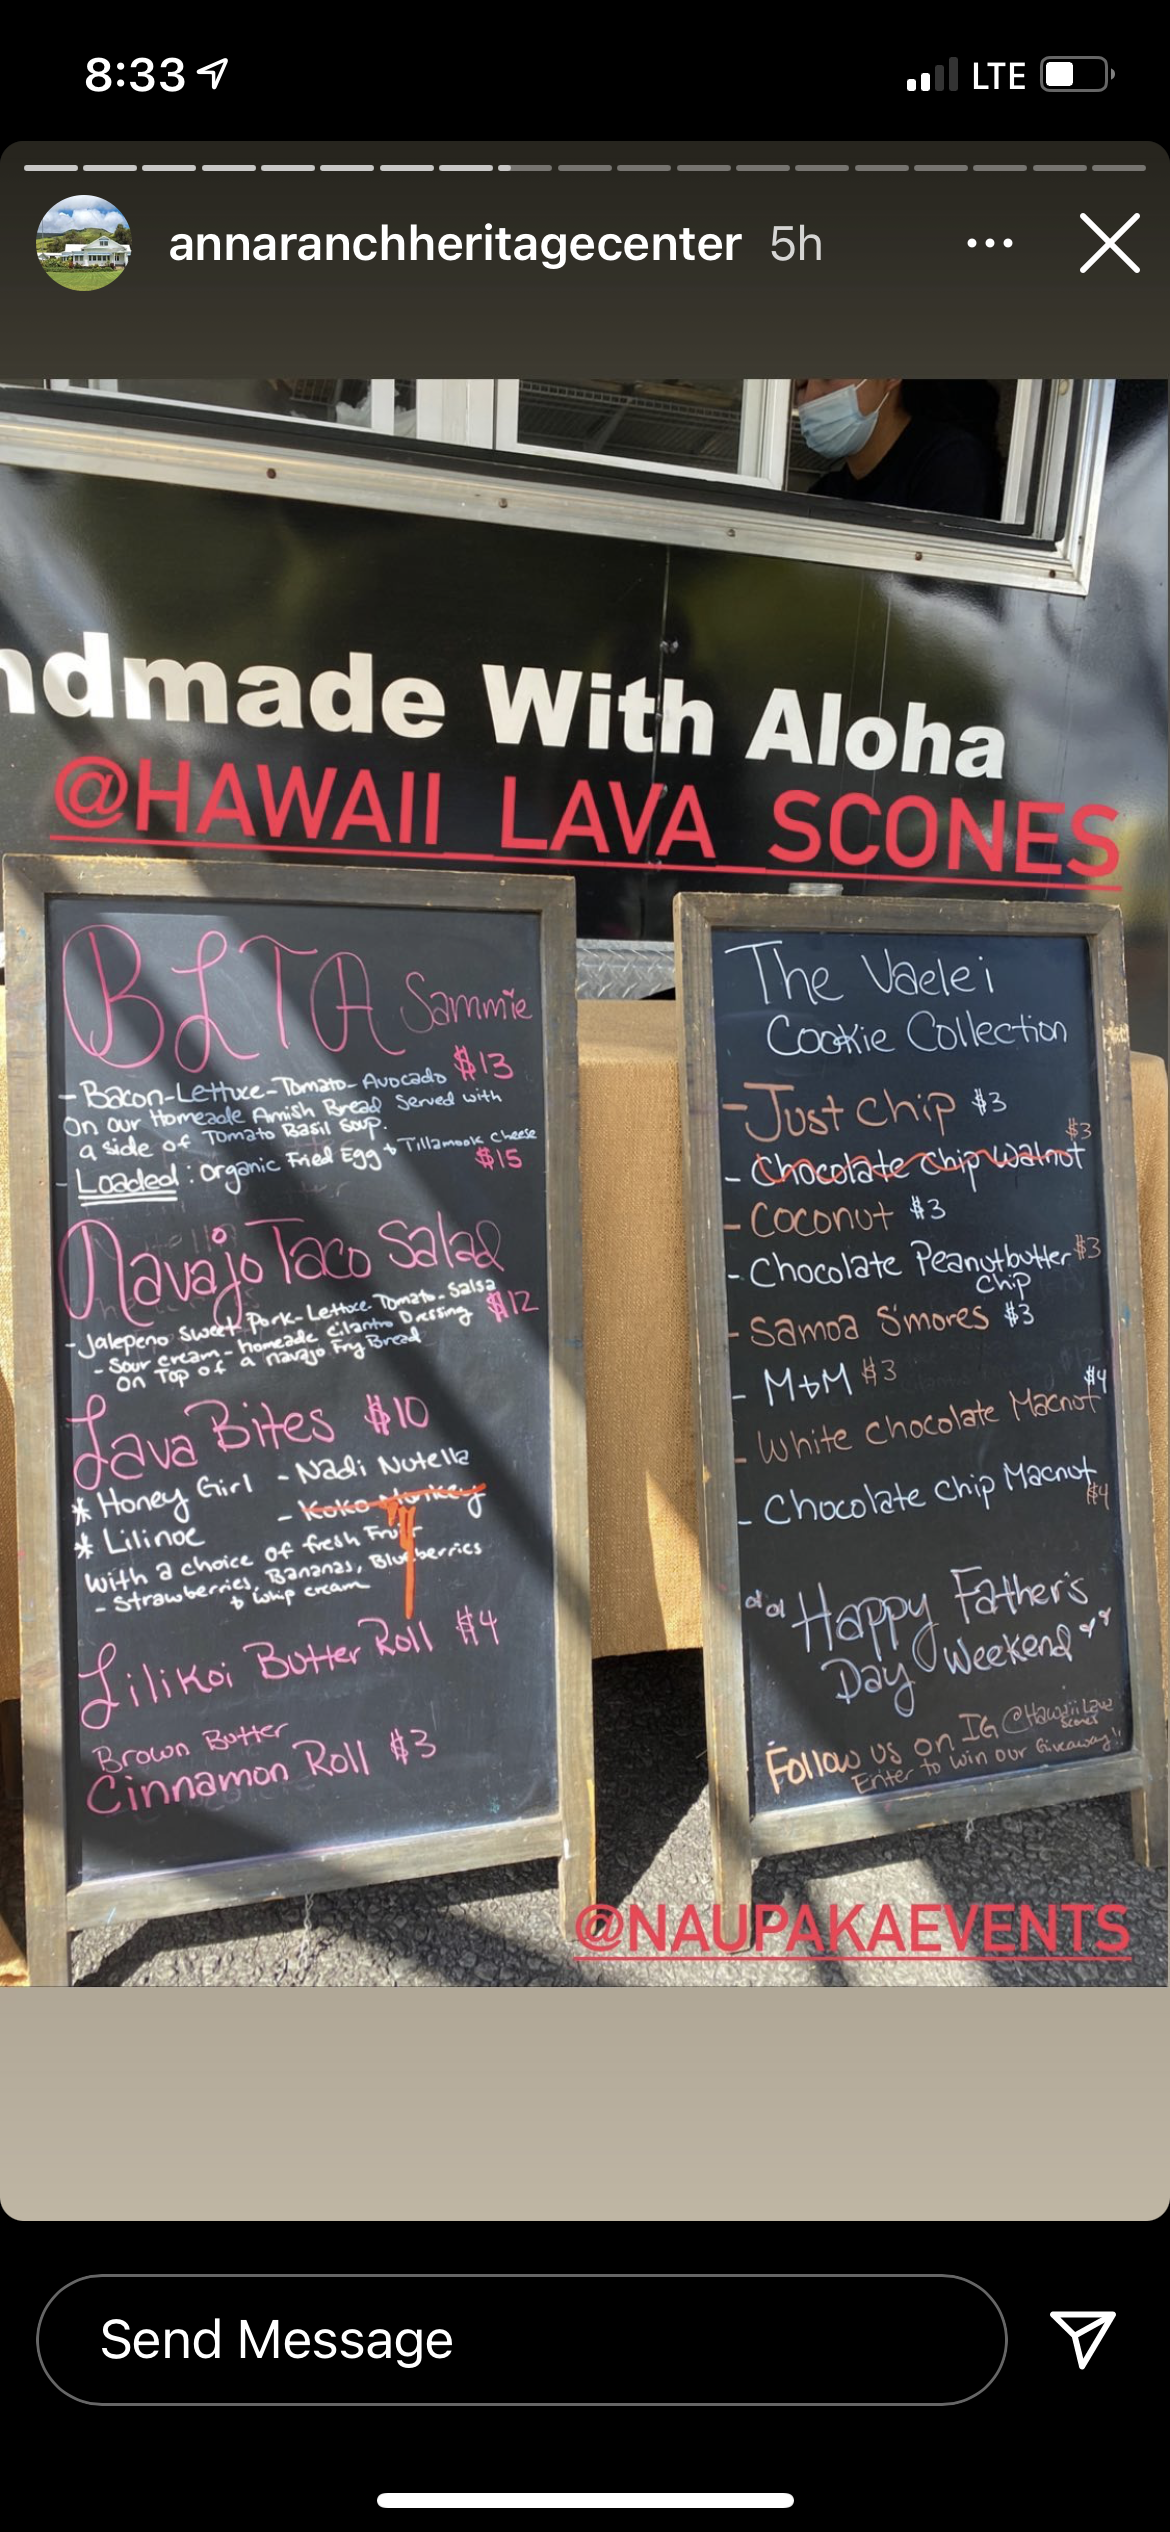 8:33
LTE
annaranchheritagecenter 5h
ndmade With Aloha
@HAWAII_LAVA_SCONES
BLTA Sammie
$13
- Bacon-Lettuce-Tomato-Avocado
On our Homeade Amish Bread Served with
a side of Tomato Basil Soup.
- Loaded: Organic Fried Egg & Tillamook Cheese
$15
Navajo Taco Salad
$12
- Jalepeno Sweet Pork-Lettuce-Tomato-Salsa
- Sour cream - homeade Cilantro Dressing
on Top of a navajo Fry Bread
Lava Bites $10
* Honey Girl - Nadi Nutella
* Lilinoe - Koko Monkey
with a choice of fresh Fruit
- Strawberries, Bananas, Blueberries
& whip cream
Lilikoi Butter Roll $4
Brown Butter
Cinnamon Roll $3
The Vaelei
Cookie Collection
- Just Chip $3
- Chocolate Chip Walnut $3
- Coconut $3
- Chocolate Peanutbutter $3
Chip
- Samoa S'mores $3
- M&M $3
- White Chocolate Macnut $4
- Chocolate Chip Macnut $4
Happy Father's
Day Weekend
Follow us on IG @Hawaii Lava
Scones
Enter to win our Giveaway!!
@NAUPAKAEVENTS
Send Message